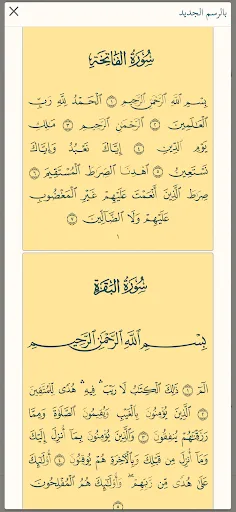 بالرسم الجديد
سُورَةُ الفَاتِحَةِ
بِسْمِ ٱللَّهِ ٱلرَّحْمَٰنِ ٱلرَّحِيمِ ١ ٱلْحَمْدُ لِلَّهِ رَبِّ
ٱلْعَالَمِينَ ٢ ٱلرَّحْمَٰنِ ٱلرَّحِيمِ ٣ مَٰلِكِ
يَوْمِ ٱلدِّينِ ٤ إِيَّاكَ نَعْبُدُ وَإِيَّاكَ
نَسْتَعِينُ ٥ ٱهْدِنَا ٱلصِّرَٰطَ ٱلْمُسْتَقِيمَ ٦
صِرَٰطَ ٱلَّذِينَ أَنْعَمْتَ عَلَيْهِمْ غَيْرِ ٱلْمَغْضُوبِ
عَلَيْهِمْ وَلَا ٱلضَّآلِّينَ ٧
١
سُورَةُ البَقَرَةِ
بِسْمِ ٱللَّهِ ٱلرَّحْمَٰنِ ٱلرَّحِيمِ
الٓمٓ ١ ذَٰلِكَ ٱلْكِتَٰبُ لَا رَيْبَ ۛ فِيهِ ۛ هُدًى لِّلْمُتَّقِينَ
٢ ٱلَّذِينَ يُؤْمِنُونَ بِٱلْغَيْبِ وَيُقِيمُونَ ٱلصَّلَوٰةَ وَمِمَّا
رَزَقْنَٰهُمْ يُنفِقُونَ ٣ وَٱلَّذِينَ يُؤْمِنُونَ بِمَآ أُنزِلَ إِلَيْكَ
وَمَآ أُنزِلَ مِن قَبْلِكَ وَبِٱلْأٓخِرَةِ هُمْ يُوقِنُونَ ٤ أُو۟لَٰٓئِكَ
عَلَىٰ هُدًى مِّن رَّبِّهِمْ ۖ وَأُو۟لَٰٓئِكَ هُمُ ٱلْمُفْلِحُونَ